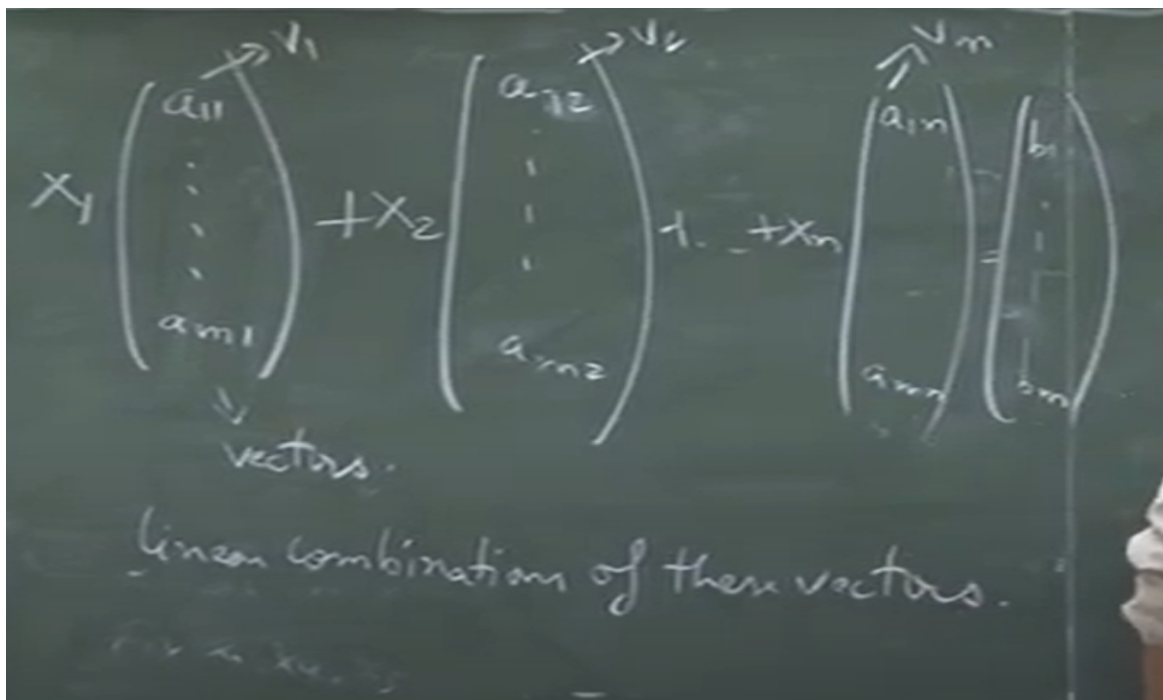 V1 V2 Vn
X1 ( a11 ⋮ am1 ) + X2 ( a12 ⋮ am2 ) + . . . + Xn ( a1n amn ) = ( b1 ⋮ bm )
vectors.
linear combination of these vectors.